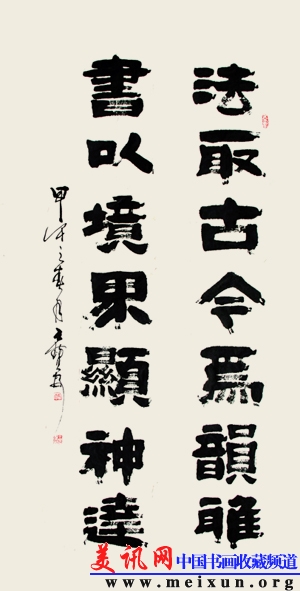 法取古今爲韻雅
書以境界顯神達
甲 之春月
美讯网 中国书画收藏频道
www.meixun.org